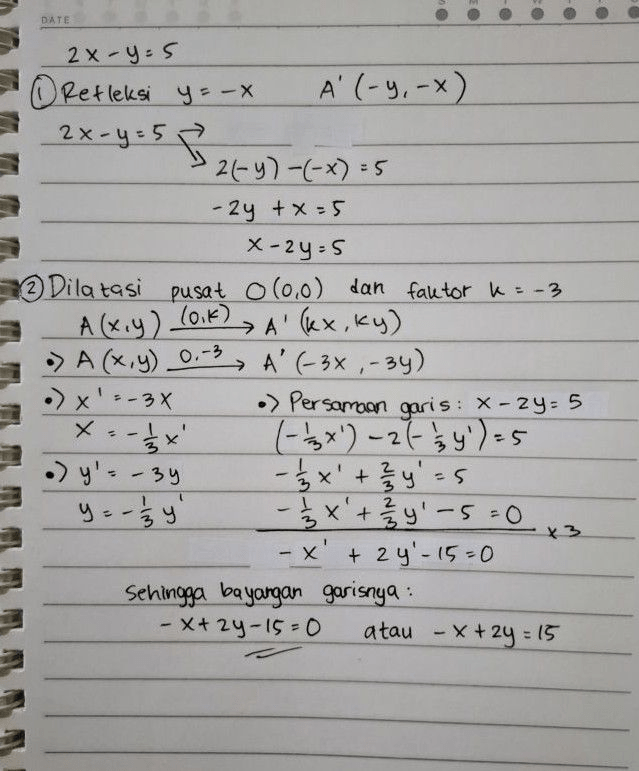 DATE S M T W T F S
2x - y = 5
① Refleksi y = -x A' (-y, -x)
2x - y = 5
2(-y) - (-x) = 5
-2y + x = 5
x - 2y = 5
② Dilatasi pusat O (0,0) dan faktor k = -3
A (x,y) (0,k) → A' (kx, ky)
•> A (x,y) 0,-3 → A' (-3x, -3y)
•> x' = -3x •> Persamaan garis : x - 2y = 5
x = -1/3 x' (-1/3 x') - 2(-1/3 y') = 5
•> y' = -3y -1/3 x' + 2/3 y' = 5
y = -1/3 y' -1/3 x' + 2/3 y' - 5 = 0 x3
-x' + 2y' - 15 = 0
Sehingga bayangan garisnya :
-x + 2y - 15 = 0 atau -x + 2y = 15